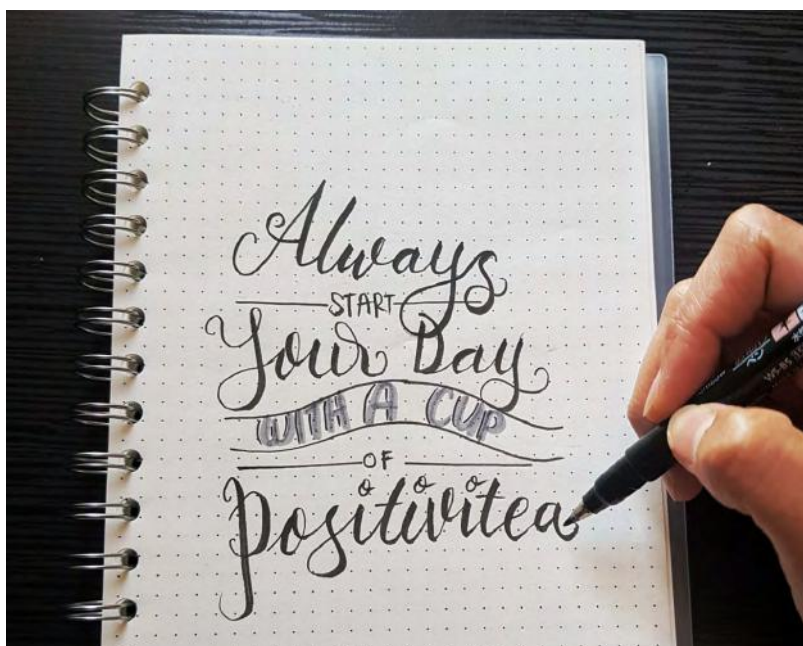 Always
START
Your Day
WITH A CUP
OF
Positivitea